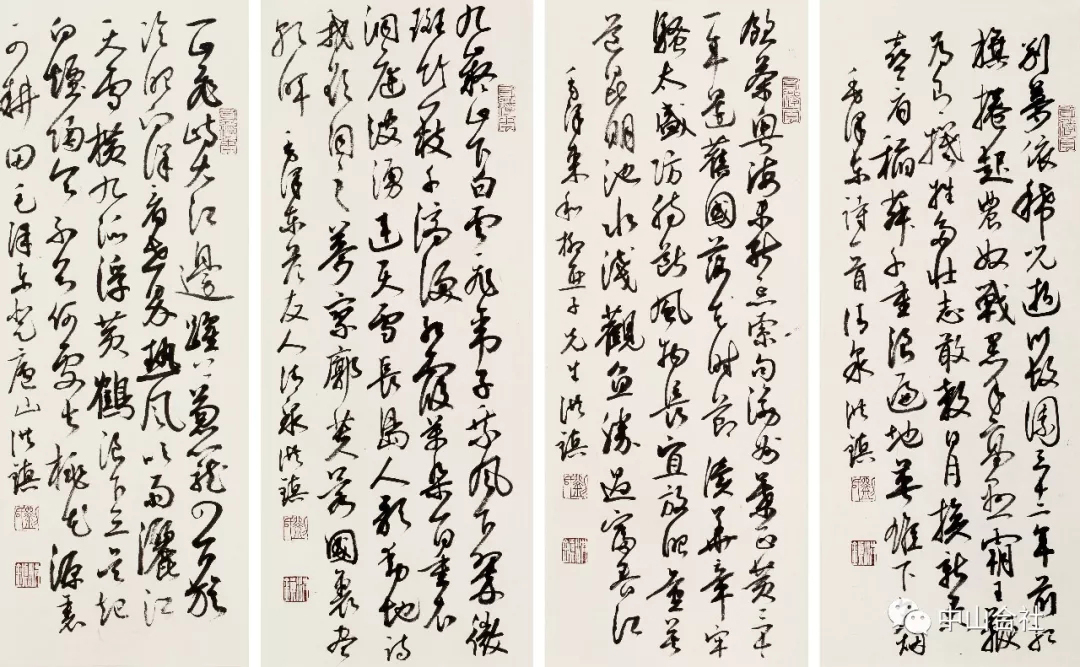 別夢依稀咒逝川故園三十二年前紅
旗捲起農奴戟黑手高懸霸主鞭
為有犧牲多壯志敢教日月換新天
喜看稻菽千重浪遍地英雄下夕烟
毛澤東詩一首清泉洪鎮
飲茶粵海未能忘索句渝州葉正黃三十
一年還舊國落花時節讀華章牢
騷太盛防腸斷風物長宜放眼量莫
道昆明池水淺觀魚勝過富春江
毛澤東和柳亞子先生洪鎮
九嶷山上白雲飛帝子乘風下翠微
斑竹一枝千滴淚紅霞萬朵百重衣
洞庭波湧連天雪長島人歌動地詩
我欲因之夢寥廓芙蓉國裏盡
朝暉毛澤東答友人清泉洪鎮
一山飛峙大江邊躍上葱蘢四百旋
冷眼向洋看世界熱風吹雨灑江
天雲橫九派浮黃鶴浪下三吳起
白煙陶令不知何處去桃花源裏
可耕田毛澤東登廬山洪鎮
中山会社